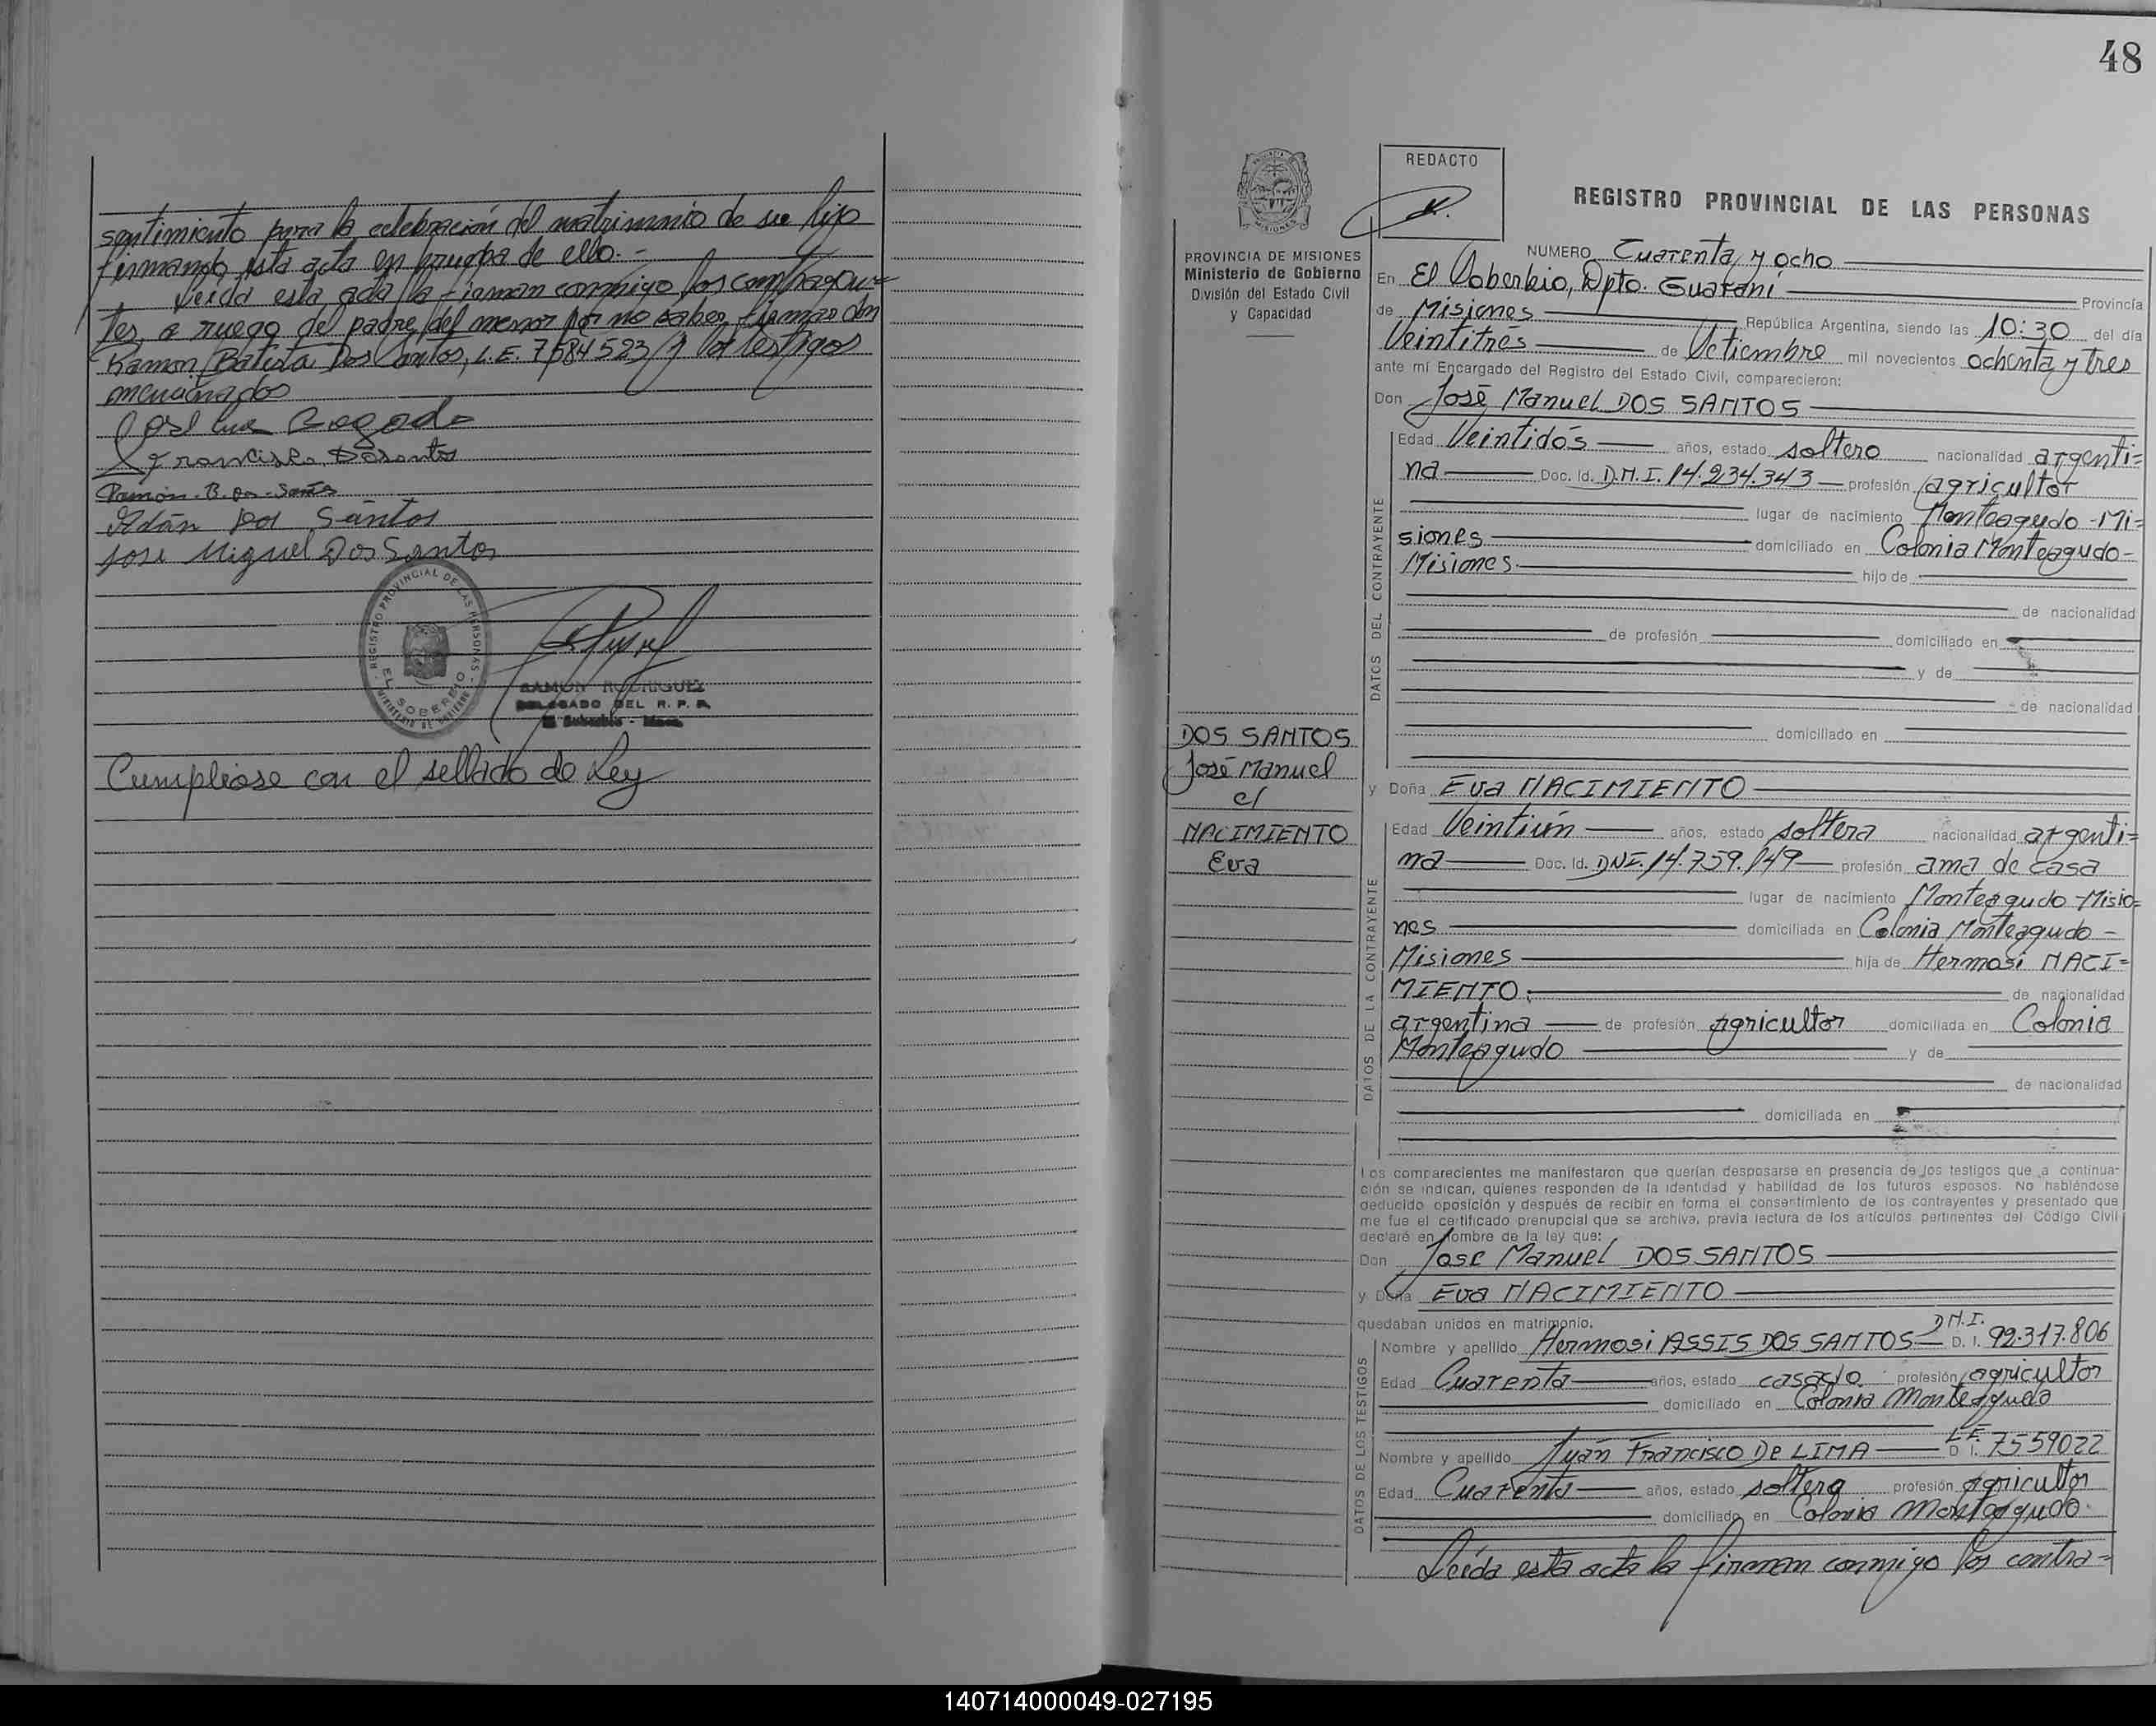 sentimiento para la celebración del matrimonio de su hijo
firmando esta acta en prueba de ello.-
Leída esta acta la firman conmigo los contrayen=
tes, a ruego del padre del menor por no saber firmar don
Ramon Batista Dos Santos, L.E. 7584523 y los testigos
mencionados
José Luis
Francisko Dosantos
Ramón. B. Dos - Santos
Adán Dos Santos
José Miguel Dos Santos
REGISTRO PROVINCIAL DE LAS PERSONAS
EL SOBERBIO
MINISTERIO DE GOBIERNO
RAMON RODRIGUEZ
DELEGADO DEL R. P. P.
El Soberbio - Mnes.
Cumplióse con el sellado de Ley
48
REDACTO
REGISTRO PROVINCIAL DE LAS PERSONAS
PROVINCIA DE MISIONES
Ministerio de Gobierno
División del Estado Civil
y Capacidad
NUMERO Cuarenta y ocho
En El Soberbio, Dpto. Guaraní Provincia
de Misiones República Argentina, siendo las 10:30 del día
Veintitrés de Setiembre mil novecientos ochenta y tres
ante mí Encargado del Registro del Estado Civil, comparecieron:
Don José Manuel DOS SANTOS
DATOS DEL CONTRAYENTE
Edad Veintidós años, estado soltero nacionalidad argenti=
na Doc. Id. D.N.I. 14.234.343 profesión agricultor
lugar de nacimiento Monteagudo - Mi=
siones domiciliado en Colonia Monteagudo -
Misiones. hijo de
de nacionalidad
de profesión domiciliado en
y de
de nacionalidad
domiciliado en
DOS SANTOS
José Manuel
c/
NACIMIENTO
Eva
y Doña Eva NACIMIENTO
DATOS DE LA CONTRAYENTE
Edad Veintiún años, estado soltera nacionalidad argenti=
na Doc. Id. DNI. 14.759.149 profesión ama de casa
lugar de nacimiento Monteagudo - Misio=
nes domiciliada en Colonia Monteagudo -
Misiones hija de Hermosi NACI=
MIENTO: de nacionalidad
argentina de profesión Agricultor domiciliada en Colonia
Monteagudo y de
de nacionalidad
domiciliada en
Los comparecientes me manifestaron que querían desposarse en presencia de los testigos que a continua-
ción se indican, quienes responden de la identidad y habilidad de los futuros esposos. No habiéndose
deducido oposición y después de recibir en forma el consentimiento de los contrayentes y presentado que
me fue el certificado prenupcial que se archiva, previa lectura de los artículos pertinentes del Código Civil
declaré en nombre de la ley que:
Don José Manuel DOS SANTOS
y Doña Eva NACIMIENTO
quedaban unidos en matrimonio.
DATOS DE LOS TESTIGOS
Nombre y apellido Hermosi ASSIS DOS SANTOS D.N.I. D. I. 92.317.806
Edad Cuarenta años, estado casado profesión agricultor
domiciliado en Colonia Monteagudo
Nombre y apellido Juán Francisco De LIMA L.E. D. I. 7559022
Edad Cuarenta años, estado soltero profesión agricultor
domiciliado en Colonia Monteagudo.
Leída esta acta la firman conmigo los contra=
140714000049-027195